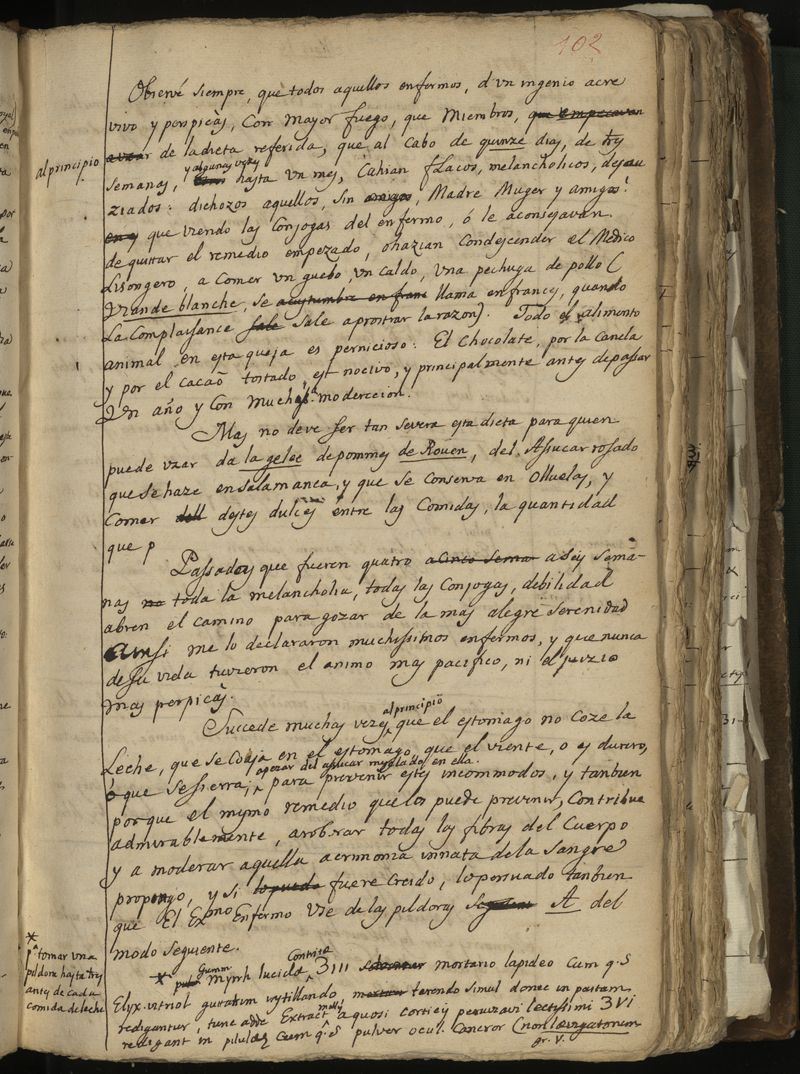 102
Observé siempre, que todos aquellos enfermos, d'un ingenio acre
vivo y perspicàs, Con mayor fuego, que Miembros, que empecavan
al principio
de la dieta referida, que al cabo de quinze dias, de tres
semanas, y algunas vezes hasta un mes, Cahian flacos, melancholicos, desau
ziados: dichozos aquellos, sin amigos, Madre Muger y amigos!
que viendo las Conjogas del enfermo, ó le aconsejavan
de quittar el remedio empezado, o hazian Condescender el Medico
Lisongero, a comer un guebo, un caldo, una pechuga de pollo (
Viande blanche, se acustumbra en franc llama en frances, quando
La Complaissance sale sale a prostrar la razon). Todo el alimento
animal en esta queja es pernicioso: El Chocolate, por la Canela
y por el cacaò tostado, est nocivo, y principalmente antes de passar
Un año y Con mucha moderecion.
Mas no deve ser tan severa esta dieta para quien
puede uzar da la gelee de pommes de Rouen, del Assucar rosado
que se haze en Salamanca, y que se Conserva en Olluelas, y
Comer dell destes dulces entre las Comidas, la quantidad
que p
Passados que fueren quatro a Cinco Sema a seis sema-
nas no toda la melancholia, todas las Conjogas, debilidad
abren el camino para gozar de la mas alegre serenidad
Ansi me lo declararon muchissimos enfermos, y que nunca
de su vida tuvieron el animo mas pacifico, ni el juizio
mas perpicàs.
Succede muchas vezes al principio que el estomago no Coze la
Leche, que se Coaja en el estomago, que el viente, o es durero,
o que se sierra, apezar del assucar mesclado en ella. para prevenir estes incommodos, y tanbien
porque el mesmo remedio que los puede prevenir, Contribue
admirablemente, a roborar todas las fibras del Cuerpo
y a moderar aquella acrimonia innata de la Sangre
propongo, y si lo puedo fuere Creido, lo persuado tanbien
que El Exmo Enfermo Use de las pildoras A del
modo seguiente.
* pa tomar una
pildora hasta tres
antes de cada
comida de leche
* Gumm myrrh lucida Contrita ʒiii mortario lapideo Cum q.s
Elyx. vitriol guttatim instillando terendo simul donec in pastam
redigantur, tunc adde Extract moll aquosi corticis peruviavi lectissimi ʒvi
redigant in pilulas Cum q.s pulver ocul. Cancror (non lævigatorum
gr. V.